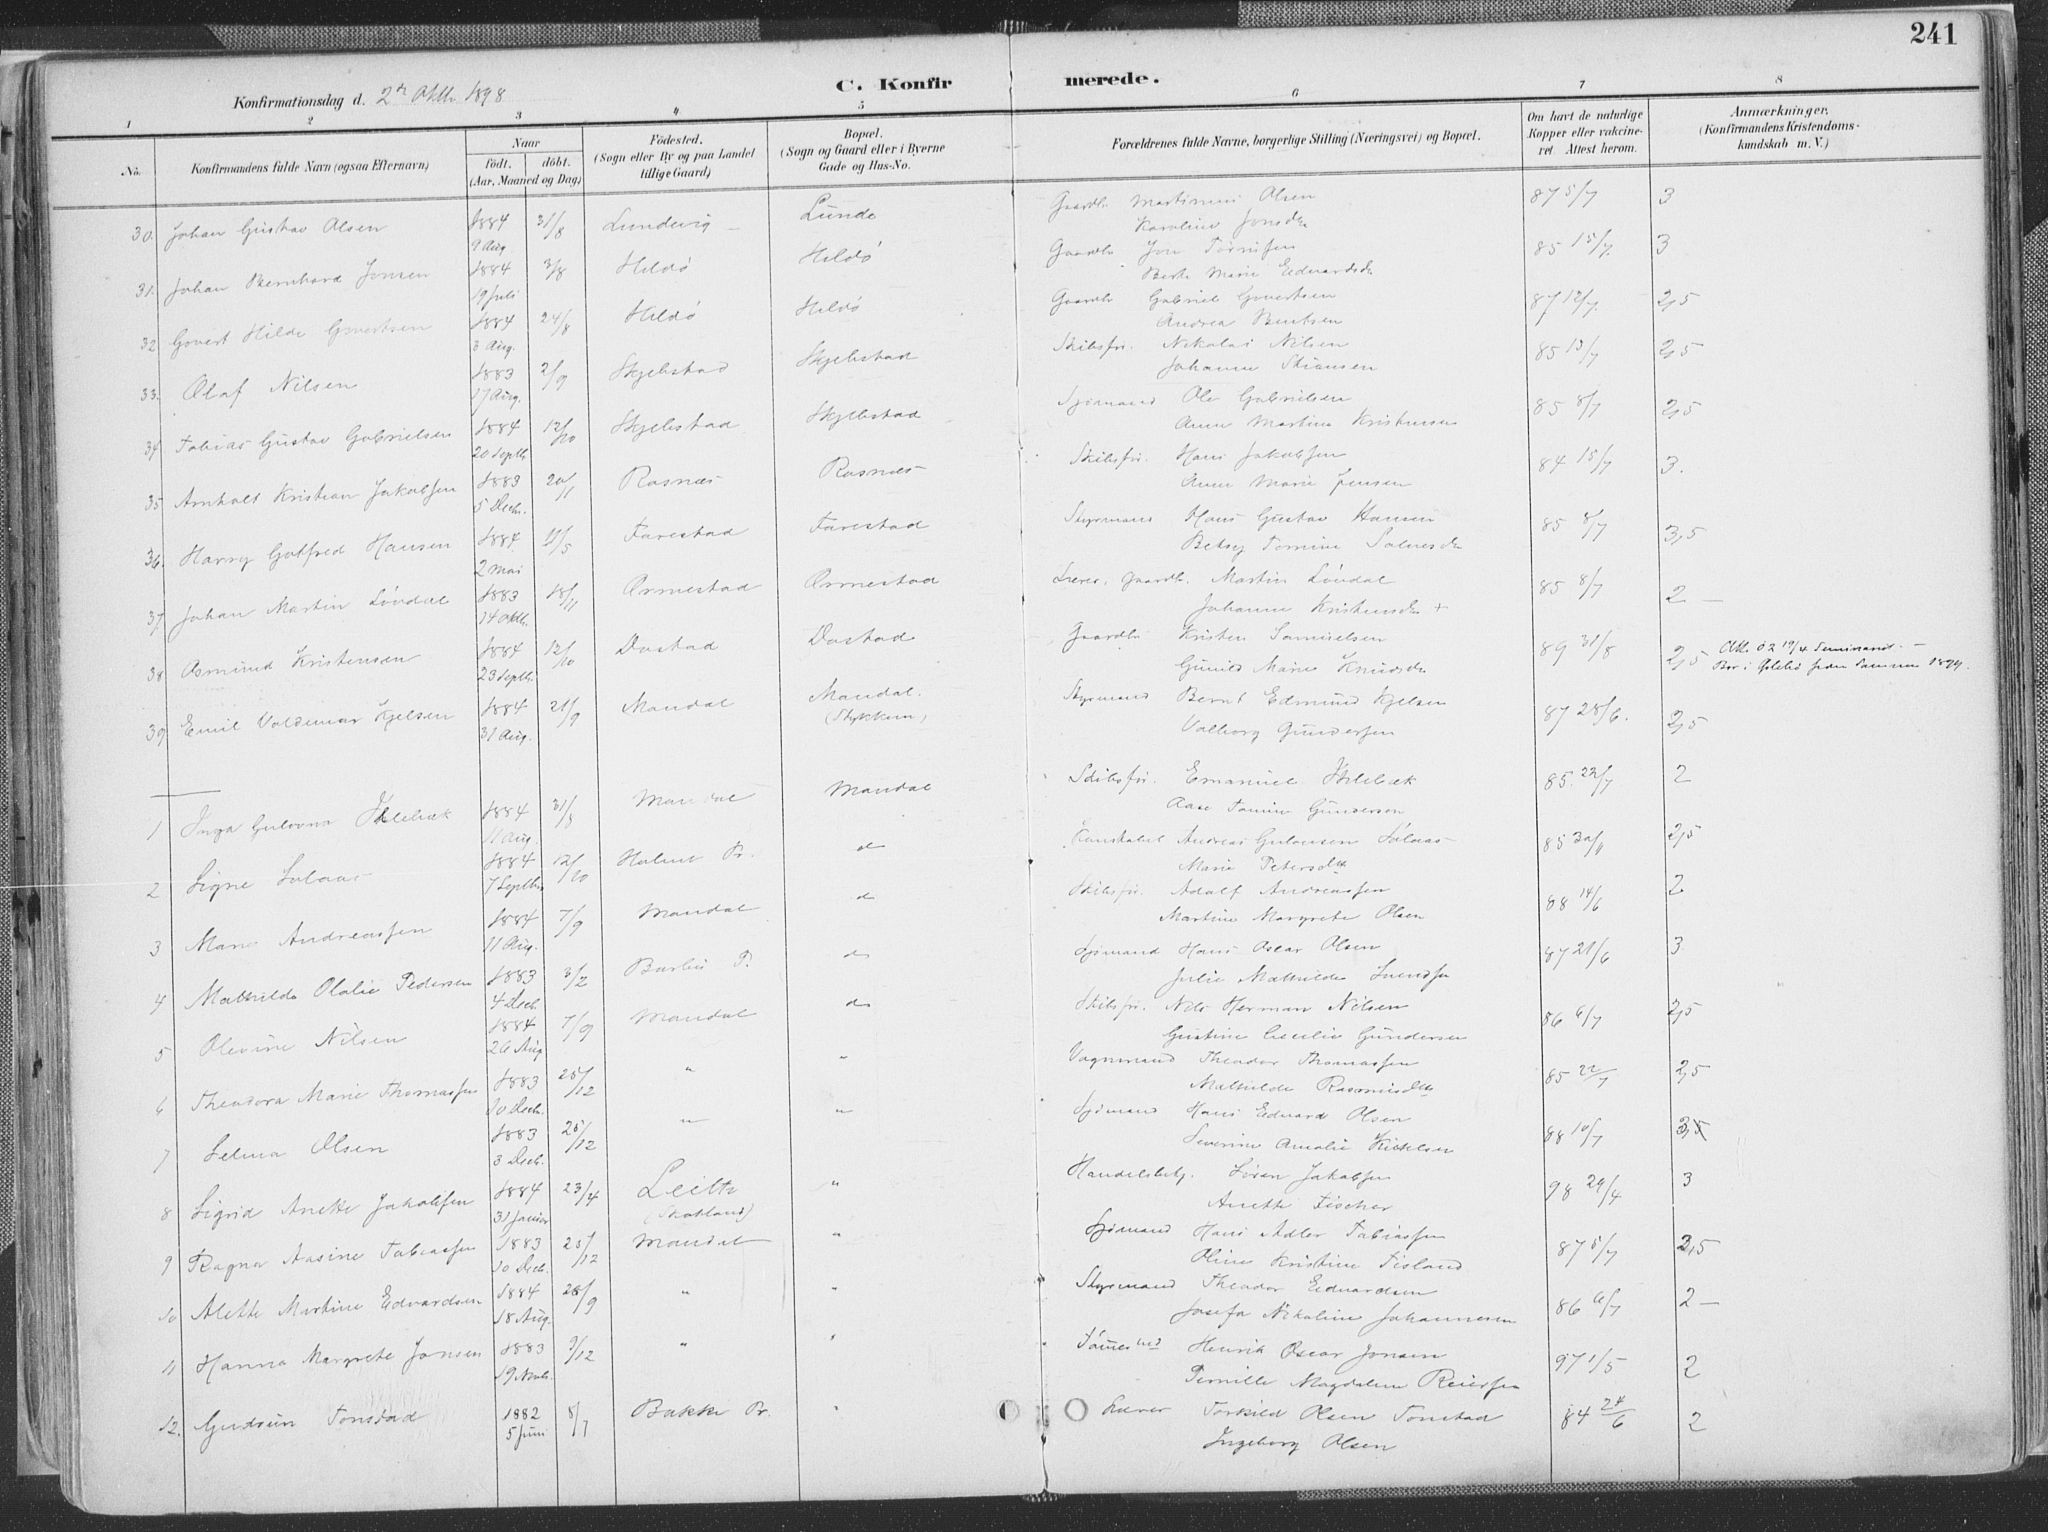 241
C. Konfirmerede.
Konfirmationsdag d. 2den Oktbr 1898
1 2 3 4 5 6 7 8
No.
Konfirmandens fulde Navn (ogsaa Efternavn)
Naar
födt. döbt.
(Aar, Maaned og Dag)
Födested.
(Sogn eller By og paa Landet
tillige Gaard)
Bopæl.
(Sogn og Gaard eller i Byerne
Gade og Hus-No.
Forældrenes fulde Navne, borgerlige Stilling (Næringsvei) og Bopæl.
Om havt de naturlige
Kopper eller vakcine-
ret. Attest herom.
Anmærkninger.
(Konfirmandens Kristendoms-
kundskab m. V.)
30. Johan Gustav Olsen 1884 9 Aug 31/8 Lundevig Lunde Gaardbr Martinius Olsen 87 5/7 3
Karoline Jonsdr
31. Johan Bernhard Jonsen 1884 19 Juli 3/8 Hildø Hildø Gaardbr Jon 85 15/7 3
Berte Marie Edvardsdr
32 Govert Hilde Govertsen 1884 3 Aug. 24/8 Hildø Hildø Gaardbr Gabriel Govertsen 87 12/7 2,5
Andrea Bentsen
33. Olaf Nilsen 1883 17 Aug. 2/9 Skjebstad Skjebstad Skibsfør. Nikolai Nilsen 85 15/7 2,5
Johanne
34 Tobias Gustav Gabrielsen 1884 20 Septb. 12/10 Skjebstad Skjebstad Sjömand Ole Gabrielsen 85 8/7 2,5
Anne Martine Kristensen
35 Arnholt Kristian Jakobsen 1883 5 Decbr. 20/1 Rosnæs Rosnæs Skibsfør. Hans Jakobsen 84 15/7 3.
Anne Marie Jensen
36. Harry Gotfred Hansen 1884 2 Mai 11/5 Farestad Farestad Styrmand Hans Gustav Hansen 85 8/7 3,5
Betsy Tomine
37 Johan Martin Lövdal 1883 14 Oktbr. 18/11 Ormestad Ormestad Lærer, Gaardbr. Martin Lövdal 85 8/7 2 —
Johanne Kristensdr +
38 Asmund Kristensen 1884 23 Septbr. 12/10 Dastad Dastad Gaardbr Kristen Samuelsen 89 31/8 2,5 Att. 02 19/4 Seminariet. —
Gunild Marie Knudsdr
39 Emil Valdemar Kjelsen 1884 31 Aug. 21/9 Mandal Mandal. Styrmand Bernt Edmund Kjelsen 87 28/6. 2,5
Valborg Gundersen
1 Inga Gulovna 1884 11 Aug. 31/8 Mandal Mandal Skibsfør. Emanuel 85. 22/7 2
Aase Tomine Gundersen
2 Signe Solaas 1884 7 Septbr. 12/10 Holme Pr. do Konstabel Andreas Gulovsen Solaas 85 30/11 2,5
Marie Petersdtr
3 Marie Andreassen 1884 11 Aug. 7/9 Mandal do Skibsfør. Adolf Andreassen 88 14/6 2
Martine Margrete Olsen
4 Mathilde Olalie Pedersen 1883 4 Decb. 3/2 Barbu P. do Sjömand Hans Oscar Olsen 87 21/6 3
Julie Mathilde Svendsen
5 Olevine Nilsen 1884 26 Aug 7/9 Mandal do Skibsfør. Nils Herman Nilsen 86 6/7 2,5
Gustine Cecilie Gundersen
6 Theodora Marie Thomassen 1883 10 Decb. 25/12 " " Vognmand Theodor Thomassen 85 22/7 2,5
Mathilde Rasmusdtr
7 Selma Olsen 1883 3 Decb. 25/12 " " Sjömand Hans Edvard Olsen 88 10/7 3,5
Severine Amalie
8 Sigrid Anette Jakobsen 1884 31 Januar 23/4 Leith (Skotland) " Handelsbetj. Sören Jakobsen 98 29/4 3
Anette Fischer
9 Ragna Aasine Tobiassen 1883 10 Decb. 25/12 Mandal " Sjömand Hans Adler Tobiassen 87 5/7 3,5
Oline Kristine Fisland
10 Alette Martine Edvardsen 1884 18 Aug. 28/9 " " Styrmand Theodor Edvardsen 86 6/7 2 —
Josefa Nikoline Johannesen
11 Hanna Margrete Jonsen 1883 19 Novb. 9/12 " " Henrik Oscar Jonsen 97 1/5 2
Pernille Magdalene Reiersen
12. Gudrun Tonstad 1882 5 Juni 8/7 Bakke Pr. " Lærer Torkild Olsen Tonstad 84 24/6 2
Ingeborg Olsen